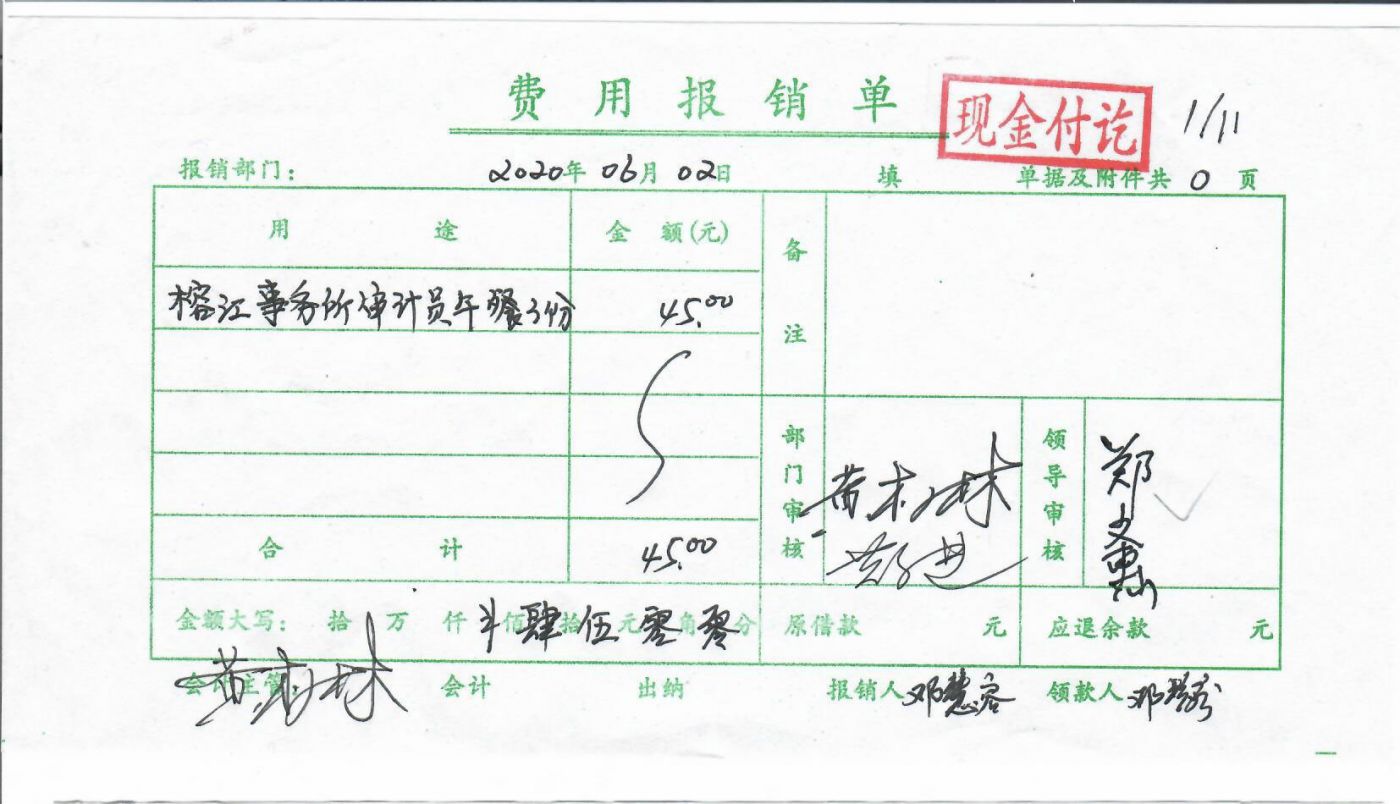 费用报销单 现金付讫 1/11
报销部门： 2020年 06月 02日 填 单据及附件共 0 页
用途 金额(元) 备注
榕江事务所审计员午餐3份 45.00
合计 45.00
部门审核 领导审核
金额大写： 拾 万 仟 佰 肆 拾 伍 元 零 角 零 分 原借款 元 应退余款 元
会计主管： 会计 出纳 报销人 邓慧容 领款人 邓慧容